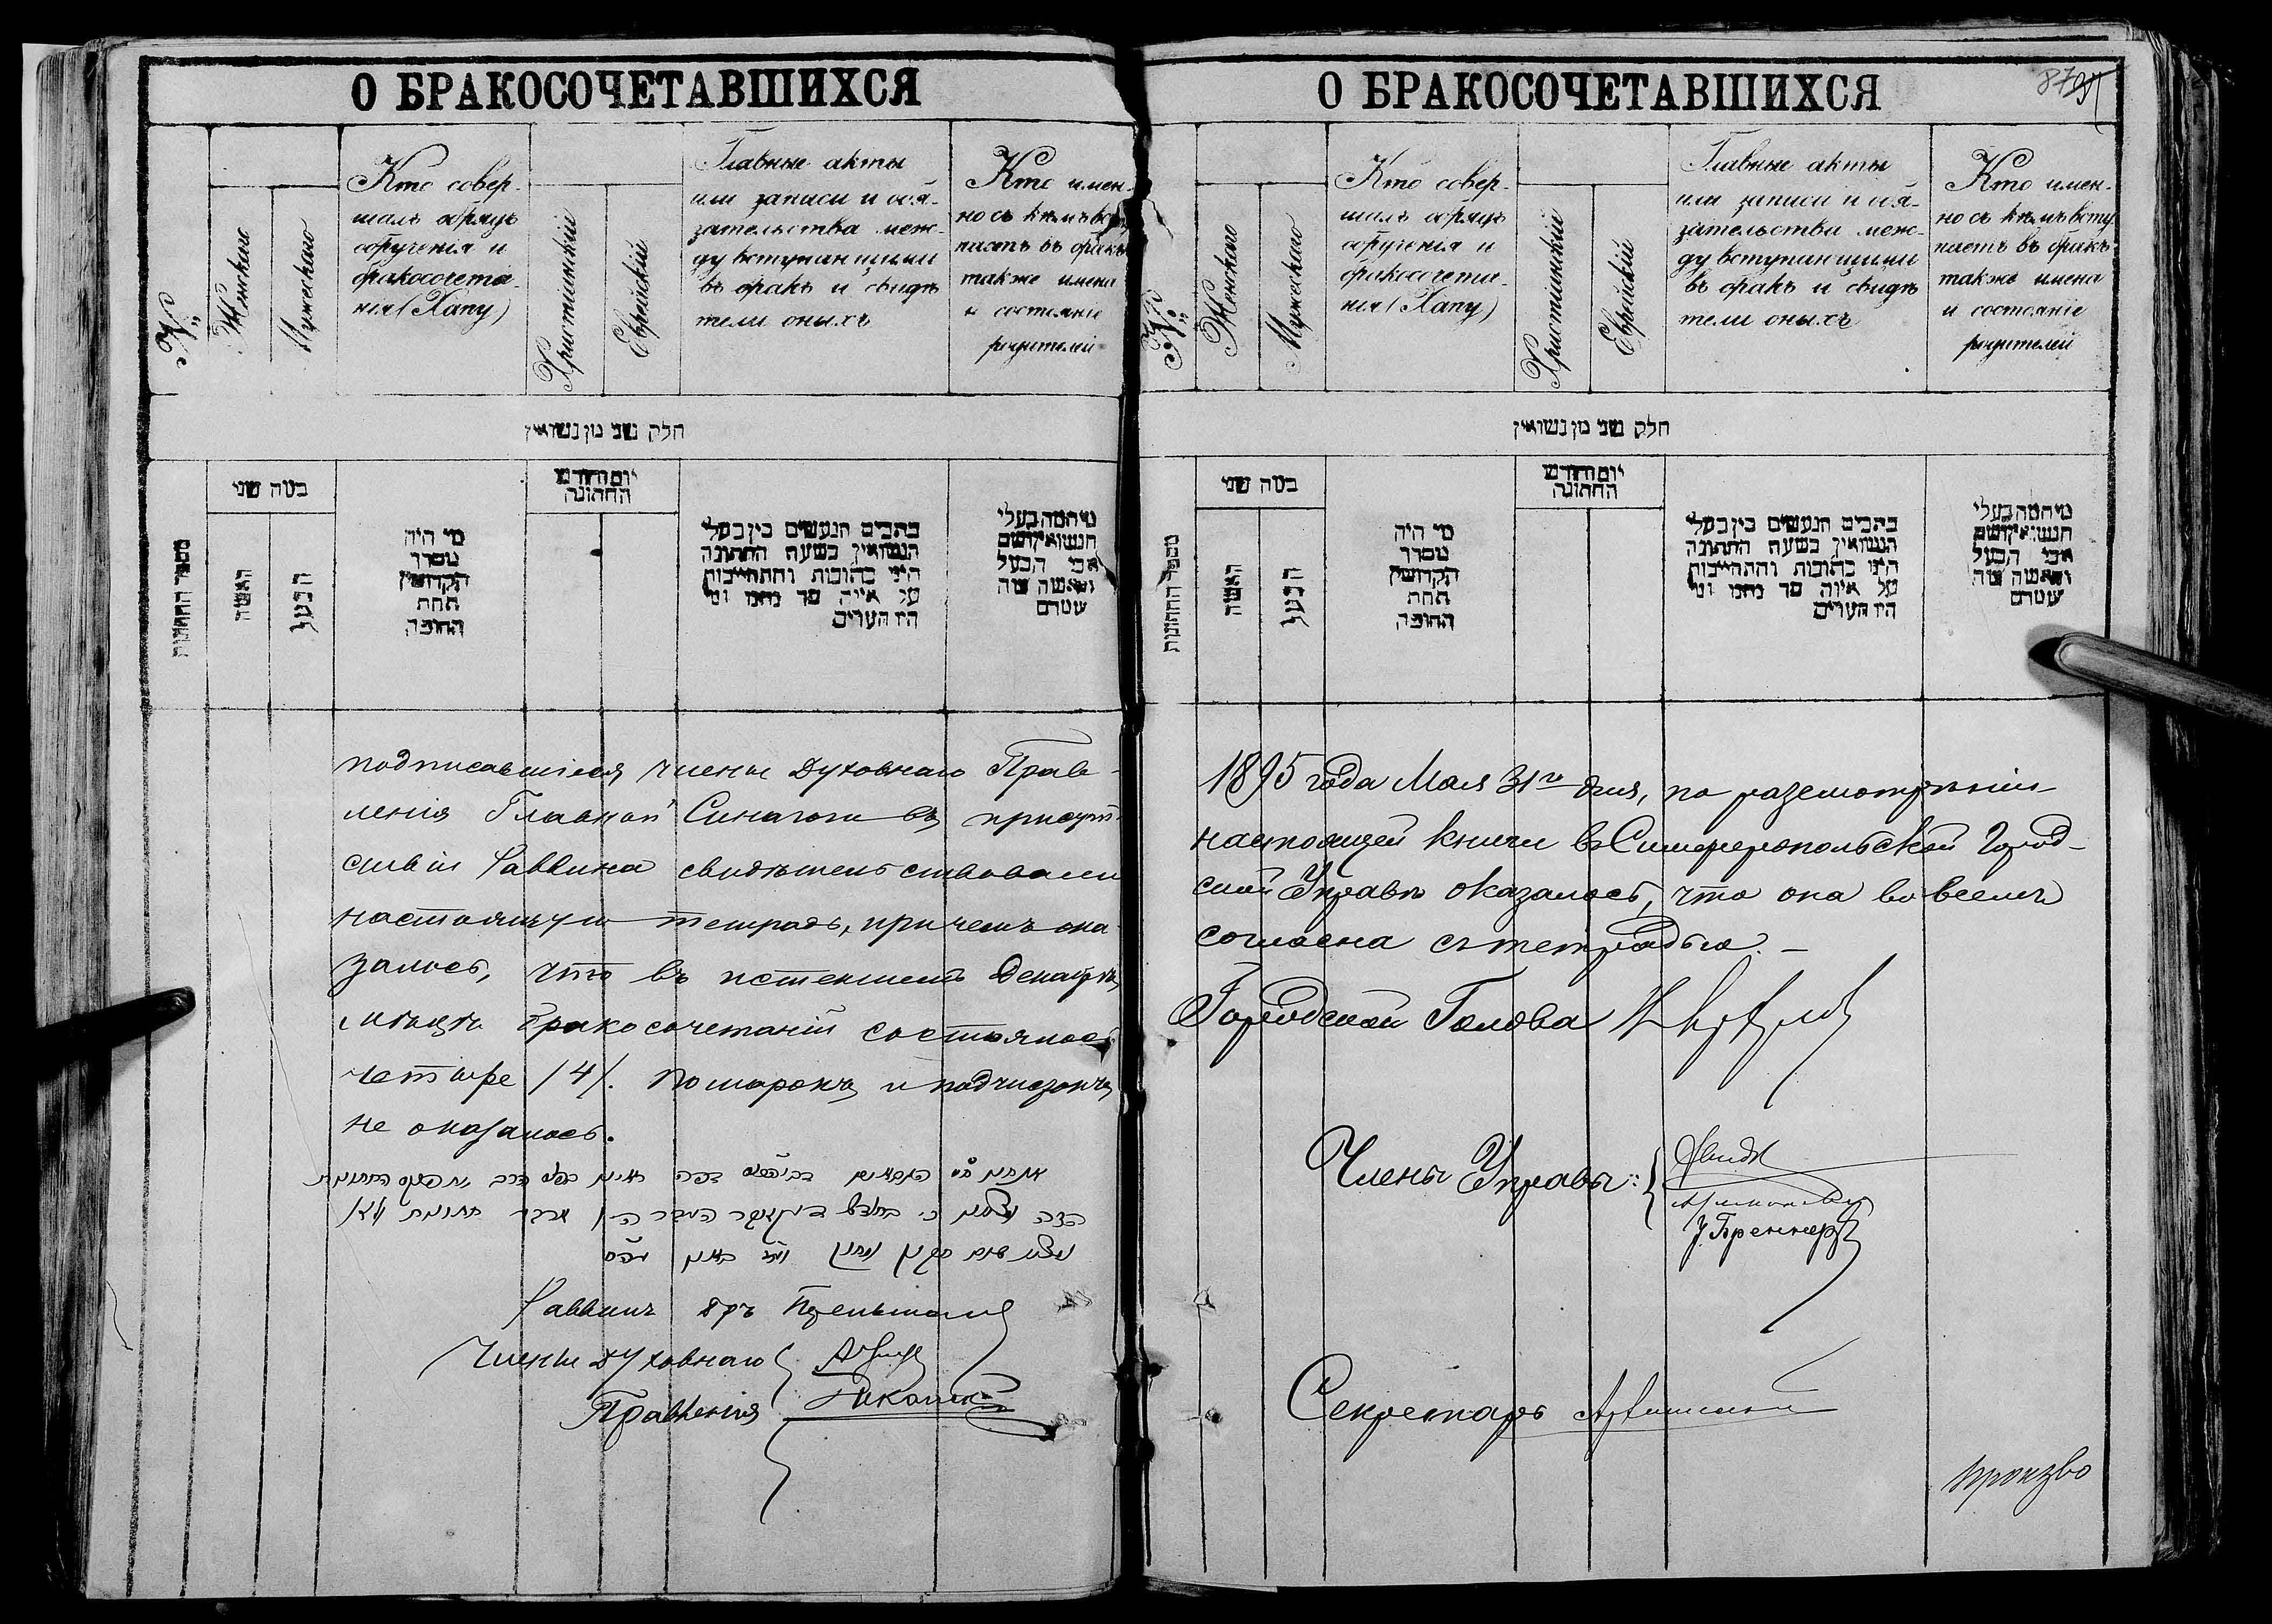 О БРАКОСОЧЕТАВШИХСЯ
№
Женскаго
Мужескаго
Кто совер-
шалъ обрядъ
обрученія и
бракосочета-
нія (Хапу)
Христіанскій
Еврейскій
Главные акты
или записи и обя-
зательства меж-
ду вступающими
въ бракъ и свидѣ
тели оныхъ
Кто имен-
но съ кѣмъ всту
паетъ въ бракъ
также имена
и состояніе
родителей
חלק שני מן נשואין
מספר החתונות
במה שני
האשה
הבעל
מי היה
מסדר
הקדושין
תחת
החופה
יום וחודש
החתונה
כתבים הנעשים בין בעלי
הנשואין בשעת החתונה
היני כתובות והתחייבות
על איזה סך נתנו ומי
היו העדים
מי המה בעלי
הנשואין ושם
אבי הבעל
והאשה ומה
שמם
подписавшіеся члены Духовнаго Прав-
ленія Главной Синагоги въ присут-
ствіи Раввина свидѣтельствовали
настоящую тетрадь, причемъ ока
залось, что въ истекшемъ Декабрѣ
мѣсяцѣ бракосочетаній состоялось
четыре /4/. Помарокъ и подчистокъ
не оказалось.
Раввинъ Дръ
Члены Духовнаго
Правленія
О БРАКОСОЧЕТАВШИХСЯ
87
№
Женскаго
Мужескаго
Кто совер-
шалъ обрядъ
обрученія и
бракосочета-
нія (Хапу)
Христіанскій
Еврейскій
Главные акты
или записи и обя-
зательства меж-
ду вступающими
въ бракъ и свидѣ
тели оныхъ
Кто имен-
но съ кѣмъ всту
паетъ въ бракъ
также имена
и состояніе
родителей
חלק שני מן נשואין
מספר החתונות
במה שני
האשה
הבעל
מי היה
מסדר
הקדושין
תחת
החופה
יום וחודש
החתונה
כתבים הנעשים בין בעלי
הנשואין בשעת החתונה
היני כתובות והתחייבות
על איזה סך נתנו ומי
היו העדים
מי המה בעלי
הנשואין ושם
אבי הבעל
והאשה ומה
שמם
1895 года Мая 31го дня, по разсмотрѣніи
настоящей книги въ Симферопольской Город-
ской Управѣ оказалось, что она во всемъ
согласна съ тетрадью. —
Городской Голова
Члены Управы:
Бреннеръ
Секретарь
произво